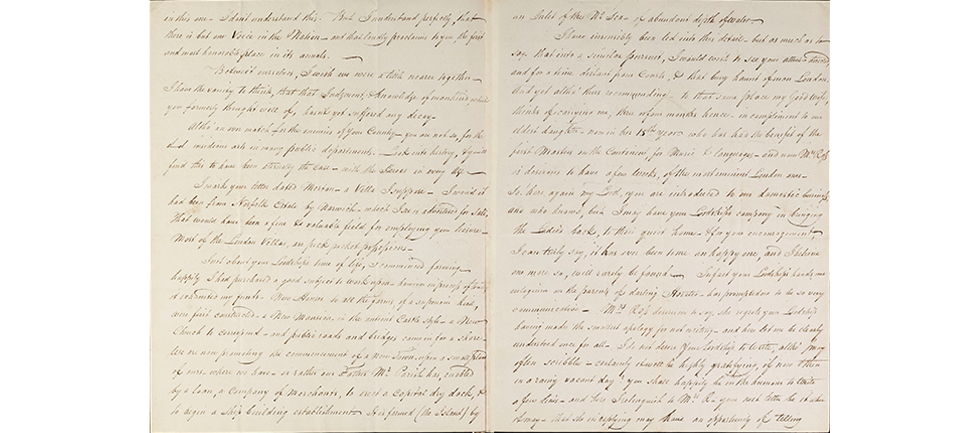 in this one – I don't understand this. But I understand perfectly, that
there is but one Voice in the Nation – and that loudly proclaims to you the first
and most honorable place in its annals.
Between ourselves, I wish we were a little nearer together –
I have the vanity to think, that that Judgment, & knowledge of mankind which
you formerly thought well of, hasn't yet suffered any decay –
Altho' an over match for the enemies of your Country – you are not so, for the
and insidious arts in many public departments. Look into history, & you'll
find this to have been eternally the case – with the Heros in every age –
I mark your letter dated Merton – a Villa I suppose – I wish it
had been from Norfolk Estate by Norwich – which I see is advertised for Sale,
that would have been a fine & valuable field for employing your leisure –
Most of the London Villas, are pick pocket possessions –
Just about your Lordship's time of life, I commenced farming –
happily I had purchased a good subject to work upon – however in process of time
it exhausted my funds – New Houses to all the farms, of a superior kind,
were first constructed – a New Mansion in the antient Castle style – a New
Church to correspond – and public roads and bridges
are now promoting the commencement of a New Town upon a small
of ours – where we have – or rather our Mr. Parish has, enabled
by a loan, a Company of Merchants, to erect a Capital dry dock, &
to begin a Ship building establishment – It is formed (the Island) by
an Inlet of the Sea – of abundant depth of water –
I have insensibly been led into this detail – but as much as to
say that into a similar pursuit, I would wish to see your attention
and for a time distant from Courts, & that busy haunt of men London.
And yet altho' thus recommending – to that same place my Good Wife,
thinks of carrying me, three or four months hence – in compliment to our
eldest daughter – now in her 15th year – who has had the benefit of the
first Masters on the Continent, for Music & languages – and now Mrs. Ross
is desirous to have a few weeks, of the most eminent London ones –
So, here again my Lord, you are introduced to our domestic business,
and who knows, but I may have your Lordship's company in bringing
the Ladies back, to their quiet home – for your encouragement,
I can truly say, it has ever been to me an happy one, and I believe
one more so, will rarely be found – In fact your Lordship's handsome
eulogium on the parents of darling Horatio – has prompted me to be so very
communicative – Mrs. Ross desires me to say, she regrets your Lordship
having made the smallest apology for not writing – and here let me be clearly
understood once for all – I do not desire your Lordship to write, altho' I may
often scribble – certainly it will be highly gratifying, if now & then
in a rainy vacant day! you shall happily be in the humour to write
a few lines – and here I relinquish to Mrs. R – you will letter it when
it may – that she in replying may have an opportunity of telling